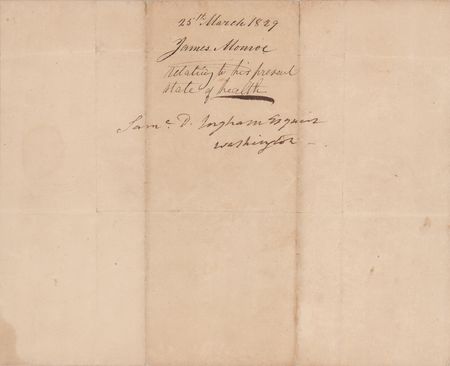 25th March 1829
James Monroe
Relating to his present
state of health
Saml. D. Ingham Esquire
Washington